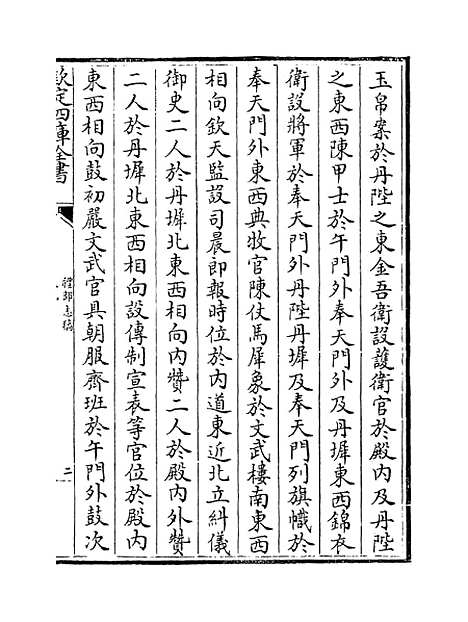 玉帛案於丹陛之東金吾衛設護衛官於殿内及丹陛
之東西陳甲士於午門外奉天門外及丹墀東西錦衣
衛設將軍於奉天門外丹陛丹墀及奉天門列旗幟於
奉天門外東西典牧官陳仗馬犀象於文武樓南東西
相向欽天監設司晨郎報時位於内道東近北立糾儀
御史二人於丹墀北東西相向内贊二人於殿内外贊
二人於丹墀北東西相向設傳制宣表等官位於殿内
東西相向鼓初嚴文武官具朝服齊班於午門外鼓次
欽定四庫全書
禮部志稿
二